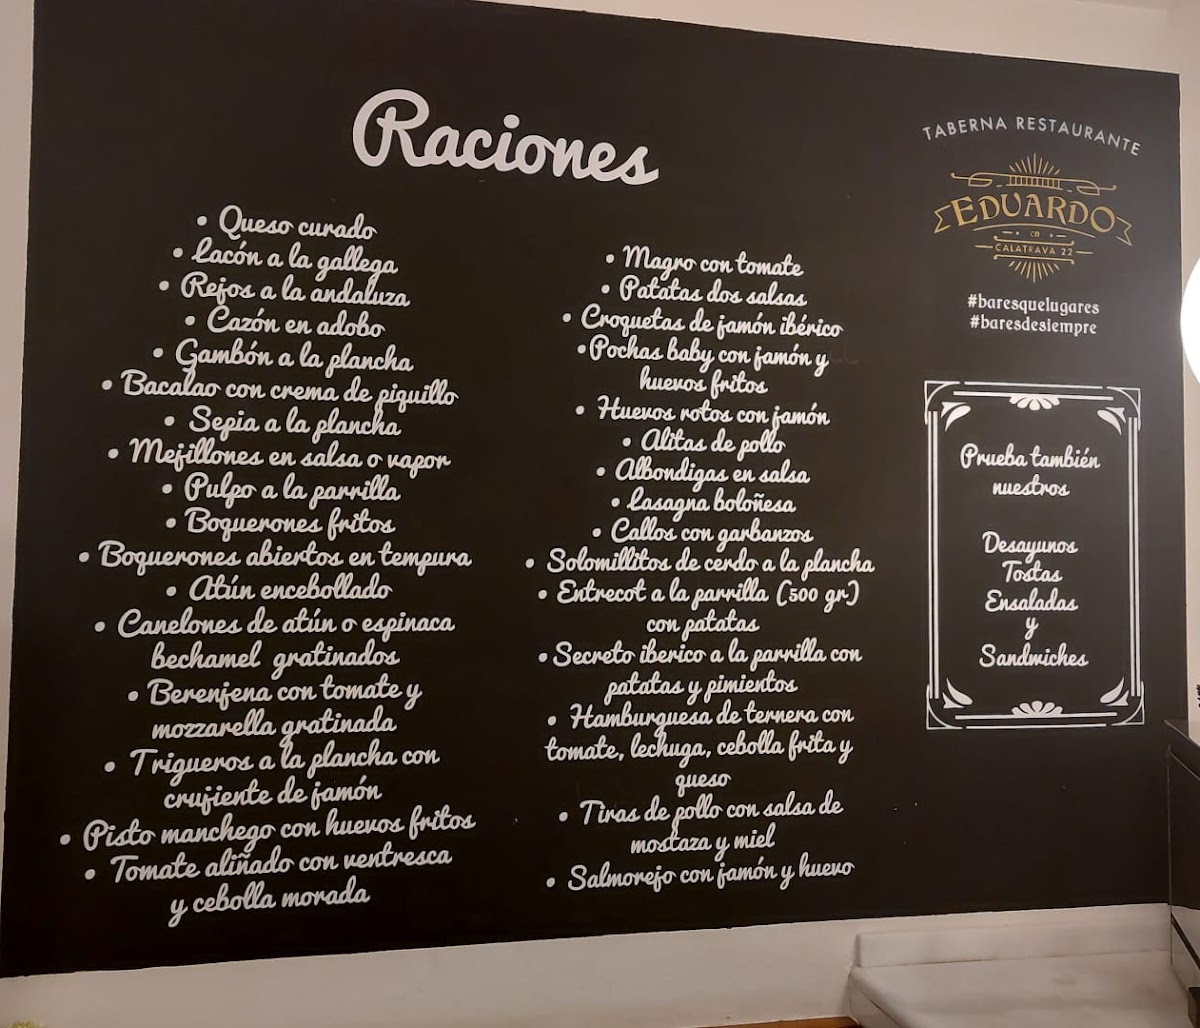 Raciones
• Queso curado
• Lacón a la gallega
• Rejos a la andaluza
• Cazón en adobo
• Gambón a la plancha
• Bacalao con crema de piquillo
• Sepia a la plancha
• Mejillones en salsa o vapor
• Pulpo a la parrilla
• Boquerones fritos
• Boquerones abiertos en tempura
• Atún encebollado
• Canelones de atún o espinaca
bechamel gratinados
• Berenjena con tomate y
mozzarella gratinada
• Trigueros a la plancha con
crujiente de jamón
• Pisto manchego con huevos fritos
• Tomate aliñado con ventresca
y cebolla morada
• Magro con tomate
• Patatas dos salsas
• Croquetas de jamón ibérico
• Pochas baby con jamón y
huevos fritos
• Huevos rotos con jamón
• Alitas de pollo
• Albondigas en salsa
• Lasagna boloñesa
• Callos con garbanzos
• Solomillitos de cerdo a la plancha
• Entrecot a la parrilla (500 gr)
con patatas
• Secreto iberico a la parrilla con
patatas y pimientos
• Hamburguesa de ternera con
tomate, lechuga, cebolla frita y
queso
• Tiras de pollo con salsa de
mostaza y miel
• Salmorejo con jamón y huevo
TABERNA RESTAURANTE
EDUARDO
en
CALATRAVA 22
#baresquelugares
#baresdesiempre
Prueba también
nuestros
Desayunos
Tostas
Ensaladas
y
Sandwiches